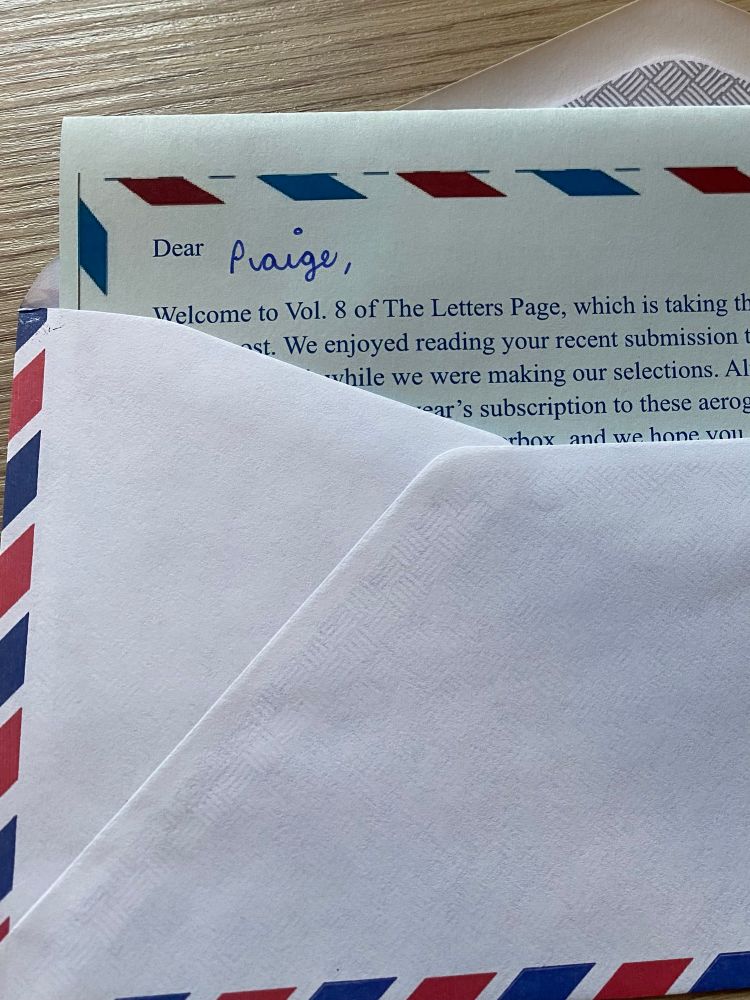 Dear Praige,
Welcome to Vol. 8 of The Letters Page, which is taking th
ost. We enjoyed reading your recent submission t
while we were making our selections. Al
ear's subscription to these aerog
rbox, and we hope you